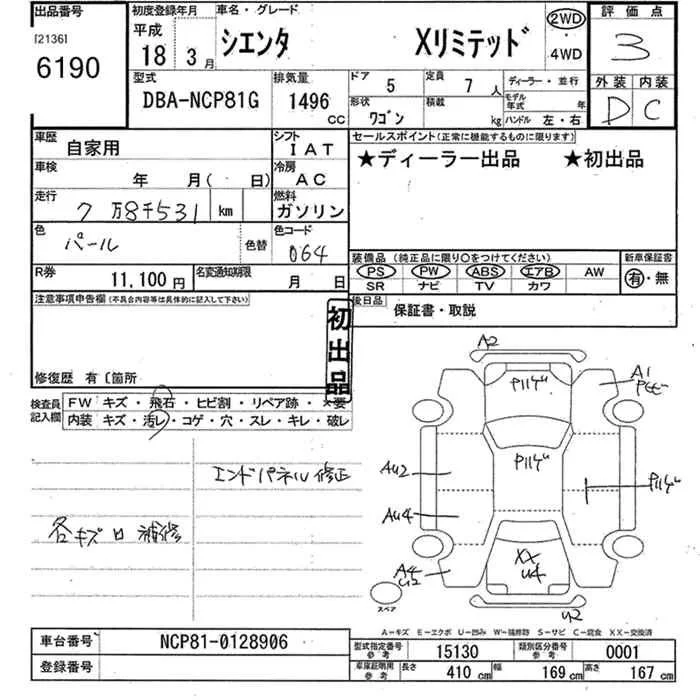 出品番号
[2136]
6190
初度登録年月
平成
18 3月
車名・グレード
シエンタ Xリミテッド
2WD
・
4WD
評価点
3
外装 内装
D C
型式
DBA-NCP81G
排気量
1496 cc
ドア 5
定員 7 人
形状 ワゴン
積載 kg
ディーラー・並行
モデル年式 年
ハンドル 左・右
車歴 自家用
シフト IAT
車検 年 月( 日)
冷房 AC
走行 7万8千531 km
燃料 ガソリン
色 パール 色替
色コード 064
R券 11,100円
名変通知期限 月 日
セールスポイント(正常に機能するものに限ります)
★ディーラー出品 ★初出品
装備品 (純正品に限り○をつけてください)
PS PW ABS エアB AW
SR ナビ TV カワ
新車保証書
有・無
後日品 保証書・取説
注意事項申告欄(不具合内容等は具体的に記入して下さい)
初出品
修復歴 有〔箇所
検査員記入欄
FW キズ・飛石・ヒビ割・リペア跡・×要
内装 キズ・汚レ・コゲ・穴・スレ・キレ・破レ
エンドパネル修正
各キズ凹補修
A2
A1
Pﾊｹﾞ
Pﾊｹﾞ
AU2
Pﾊｹﾞ
AU4
XX
U4
A4
U2
U2
スペア
A−キズ E−エクボ U−凹み W−補修跡 S−サビ C−腐食 XX−交換済
車台番号 NCP81-0128906
登録番号
型式指定番号 参考 15130
類別区分番号 参考 0001
車庫証明用 参考 長さ 410 cm 幅 169 cm 高さ 167 cm